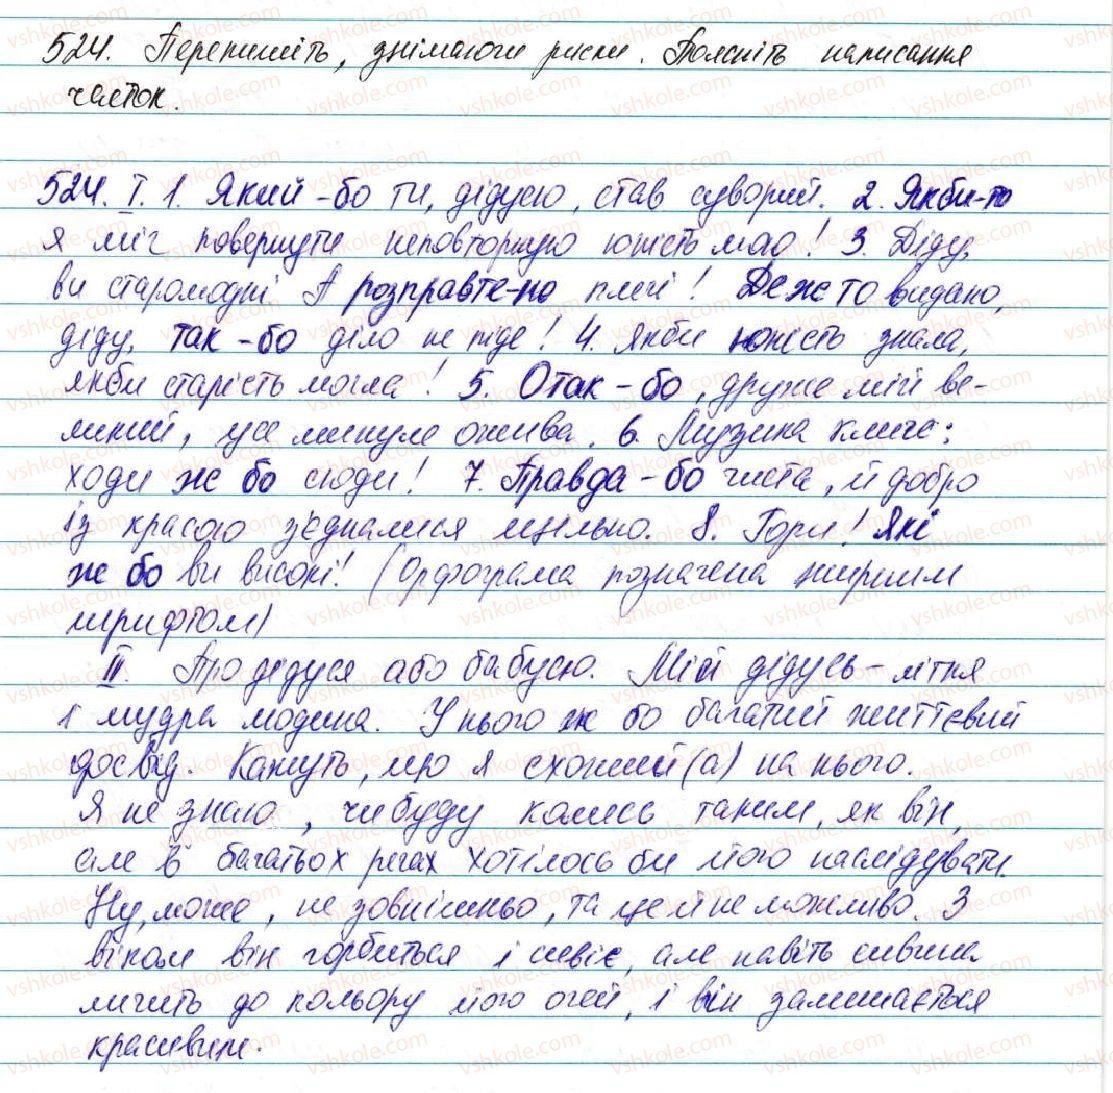 524. Перепишіть, знімаючи риски. Поясніть написання
часток.
524. I. 1. Який-бо ти, дідусю, став суворий. 2. Якби-то
я міг повернути неповторную юність мою! 3. Діду,
ви старомодні А розправте-но плечі! Де ж то видано,
діду, так-бо діло не піде! 4. Якби юність знала,
якби старість могла! 5. Отак-бо, друже мій ве-
ликий, усе минуле ожива. 6. Музика кличе:
ходи ж бо сюди! 7. Правда-бо чиста, й добро
із красою з'єдналися щільно. 8. Гори! Які
ж бо ви високі! (Орфограма позначена жирним
шрифтом)
II. Про дідуся або бабусю. Мій дідусь - літня
і мудра людина. У нього ж бо багатий життєвий
досвід. Кажуть, що я схожий(а) на нього.
Я не знаю, чи буду колись таким, як він,
але в багатьох речах хотілось би його наслідувати.
Ну, може, не зовнішньо, та це й не можливо. З
віком він горбиться і сивіє, але навіть сивина
личить до кольору його очей, і він залишається
красивим.
vshkole.com